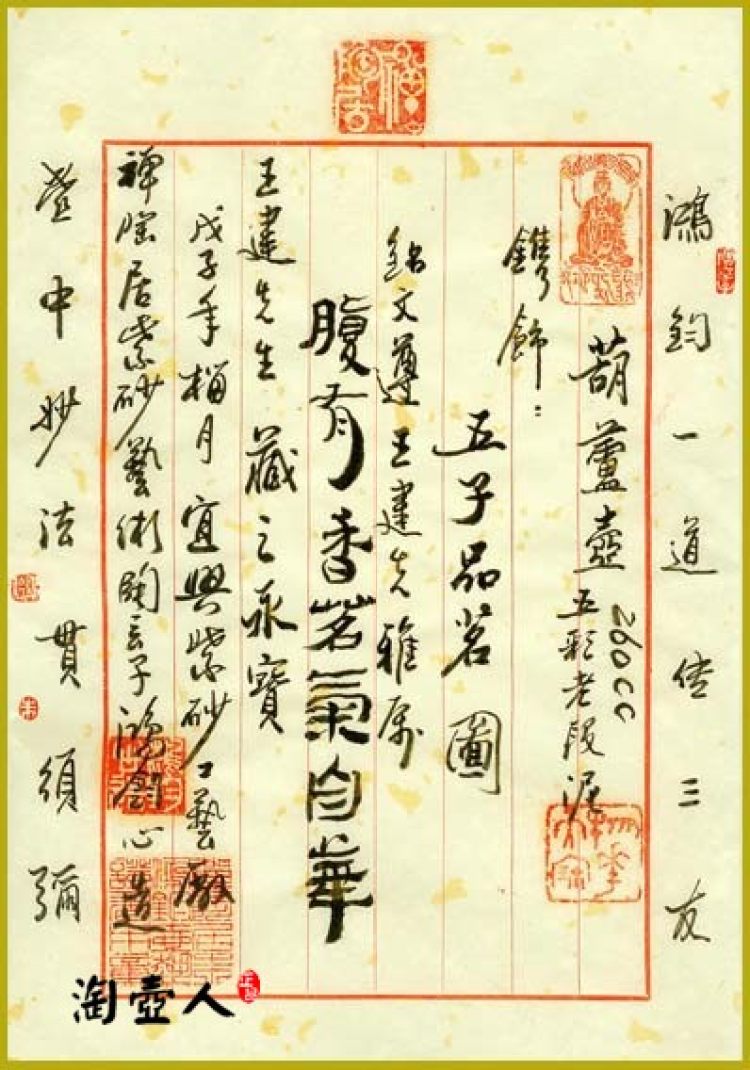 鴻鈞一道传三友
葫蘆壺 五彩老段泥
260cc
鐫飾:
五子品茗圖
銘文遵王建先雅属
腹有香茗氣自華
王建先生 藏之永寶
戊子年榴月 宜興紫砂工藝廠
禪陶居紫砂藝術陶言子鴻鈞心造
壺中妙法貫須彌
淘壺人